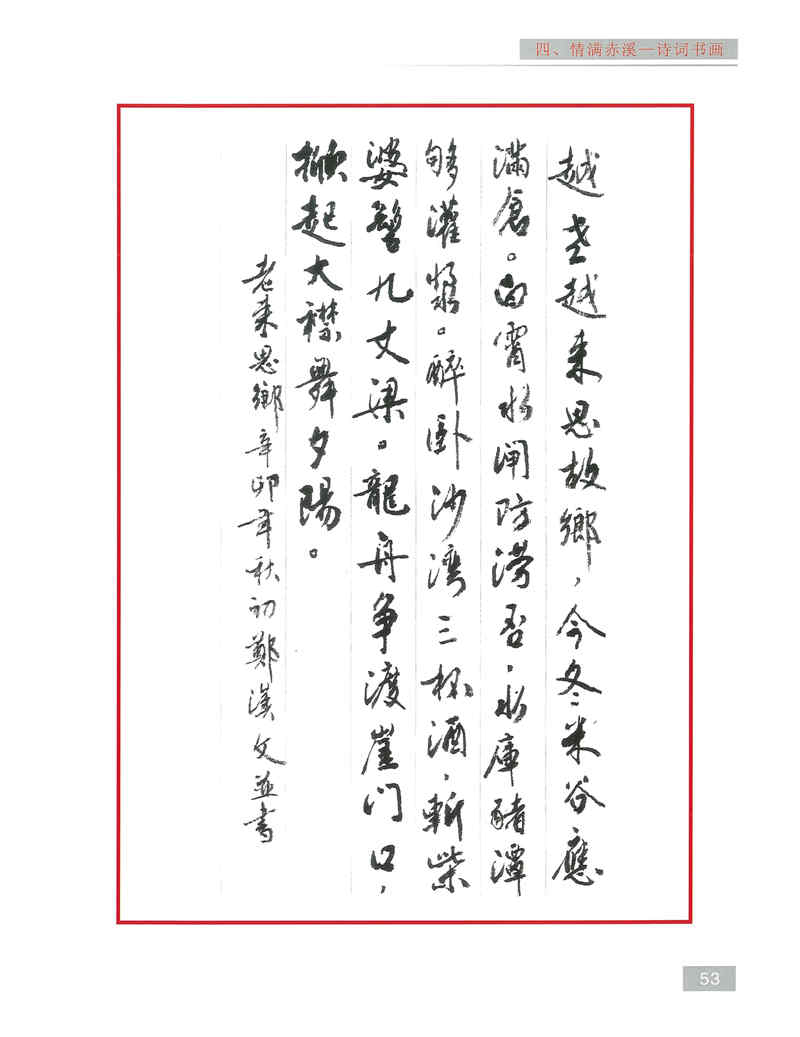 四、情满赤溪—诗词书画
越老越来思故鄉，今冬米谷應
滿倉。白霄水闸防涝否，水庫豬潭
够灌漿。醉卧沙湾三杯酒，斬柴
婆髻九丈梁。龍舟争渡崖门口，
掀起大襟舞夕陽。
老来思鄉辛卯年秋初鄭漢文並書
53